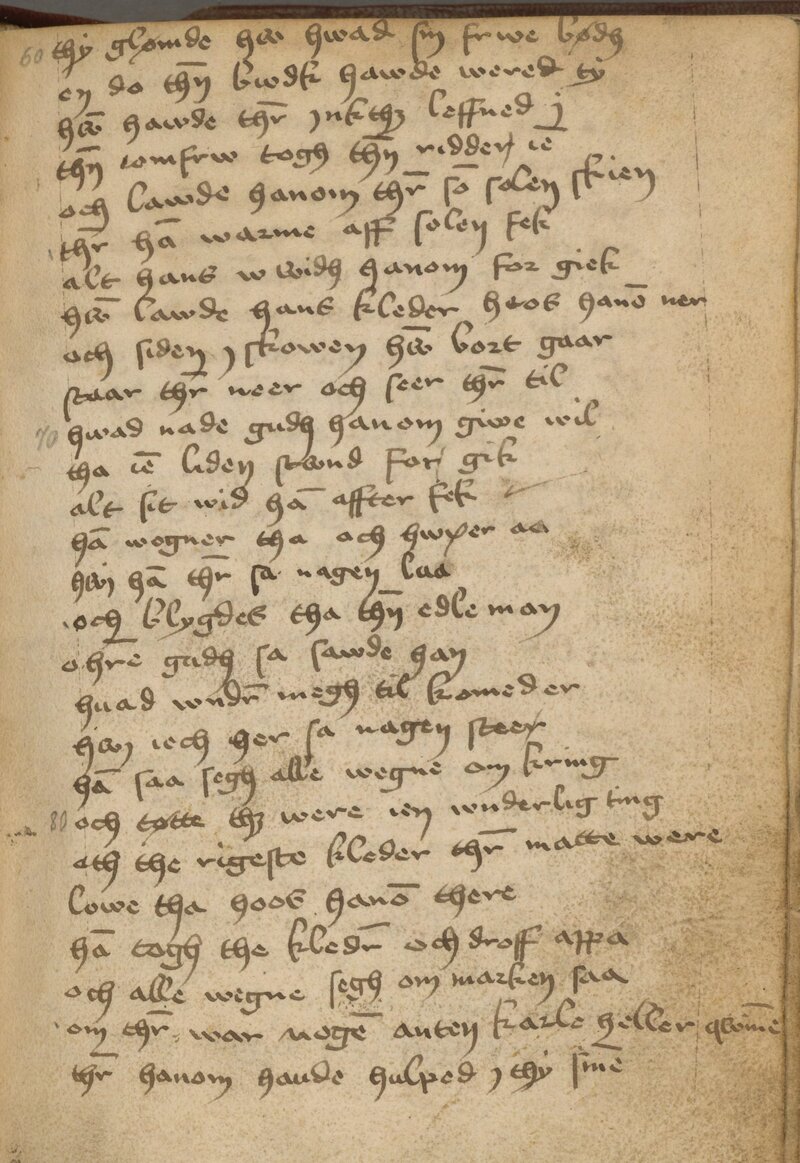 60 thy glømde hw̄ hwad sin frwe bødh
en do thn̄ bwdk hawde wered ty
hw̄ hawde thr̄ inkthz leffned j
thn̄ iomfrw togh thn̄ ridder iē
och lawde hanom thr̄ sō solen skien
thr̄ hā warme aff solen fek
alt hans w widh hanom for giek
hw̄ lawde hans kleder hoos hanō ner
och siden j skowen hw̄ bort gaar
staar thr̄ neer och seer thr̄ til
70 hwad nade gudh hanom giwe wil
tha iē liden stwnd for gik
alt sit wid hā affter fek
hā wogner tha och hwxer aa
hwi hā thr̄ sa nagen laa
och blygdes tha thn̄ edle man
o hr̄e gudh sa sawde han
huad wndr̄ megh til komed er
hwi iech her sa nagen steer
hā saa segh alle wegne om kring
80 och tøtte thz were ien wnderlig ting
ath the rigeste kleder thr̄ matte were
lowe tha hoos hanō there
hā togh the kledr̄ och droff appa
och alle wegne segh om marken saa
om thr̄ war nogē anten karle heller qwinē
thr̄ hanom haude hulped j thy sinē